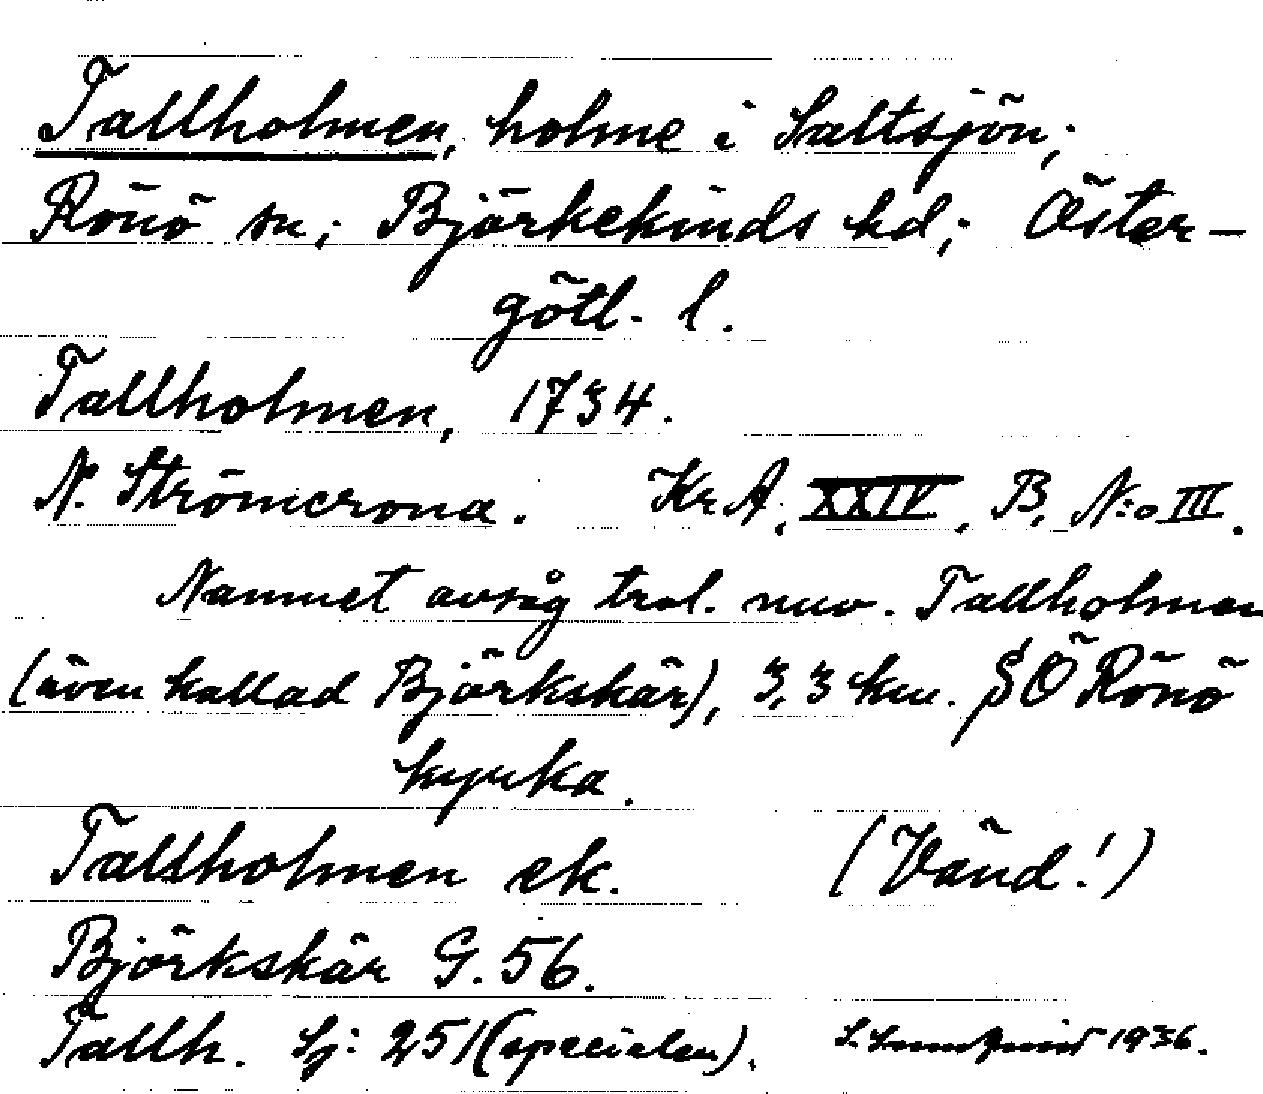 Tallholmen, holme i Saltsjön;
Rönö sn; Björkekinds hd; Öster-
götl. l.
Tallholmen, 1734.
N. Strömcrona. Kr.A, XXIV, B, N:o III.
Namnet avsåg trol. nuv. Tallholmen
(även kallad Björkskär), 3,3 km. SÖ Rönö
kyrka.
Tallholmen ek. (Vänd!)
Björkskär G. 56.
Tallh. Sj: 251 (specialen). 1936.